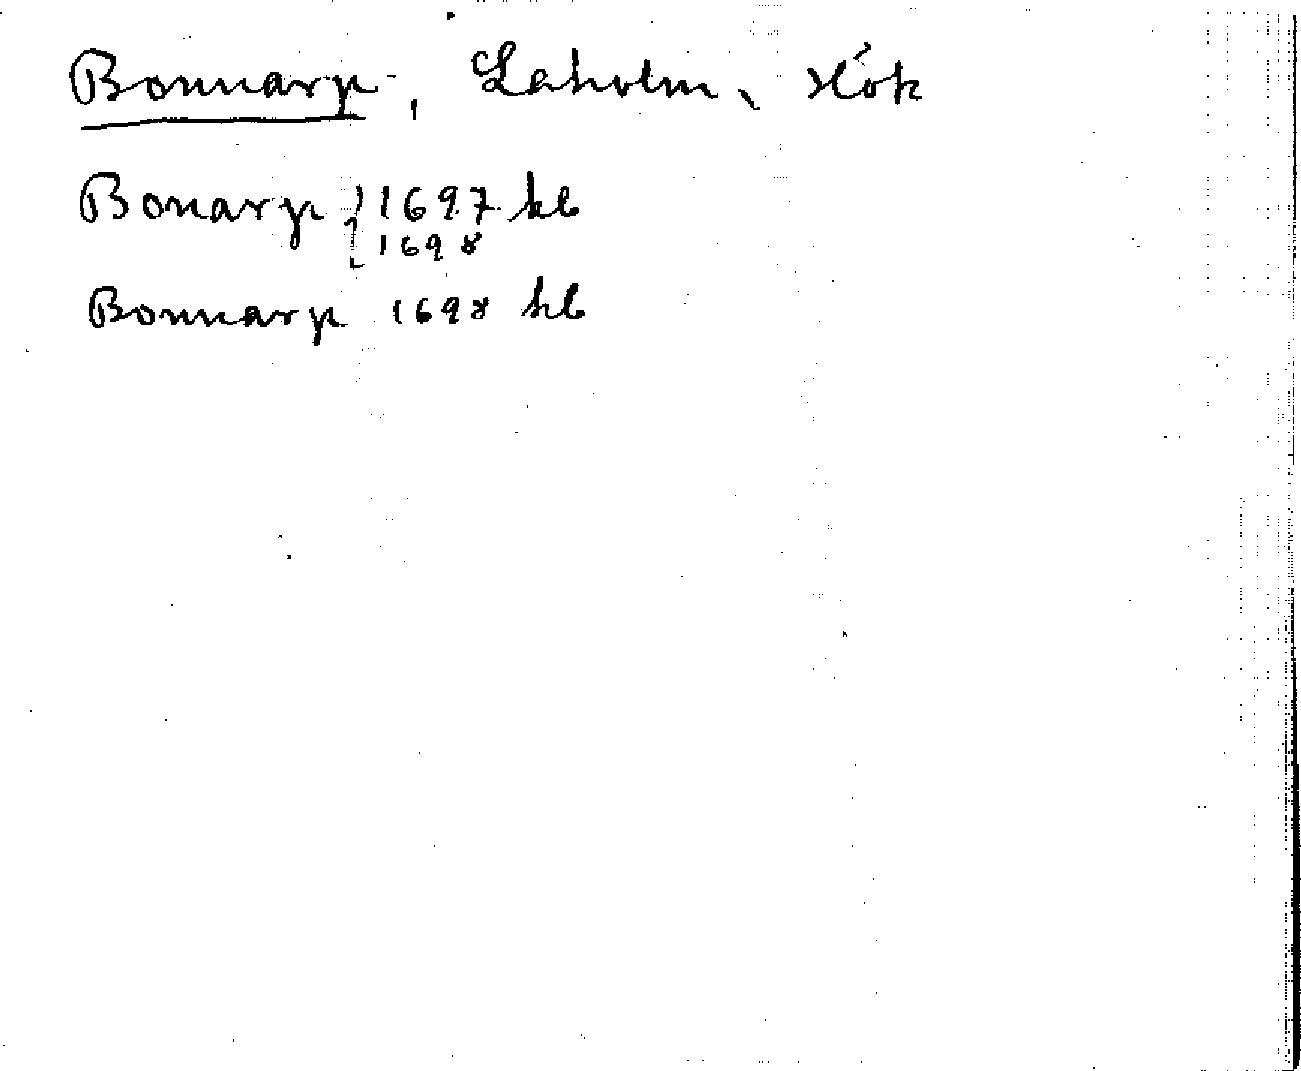 Bonnarp, Laholm, Hök
Bonarp } 1697 kb
{ 1698
Bonnarp 1698 kb